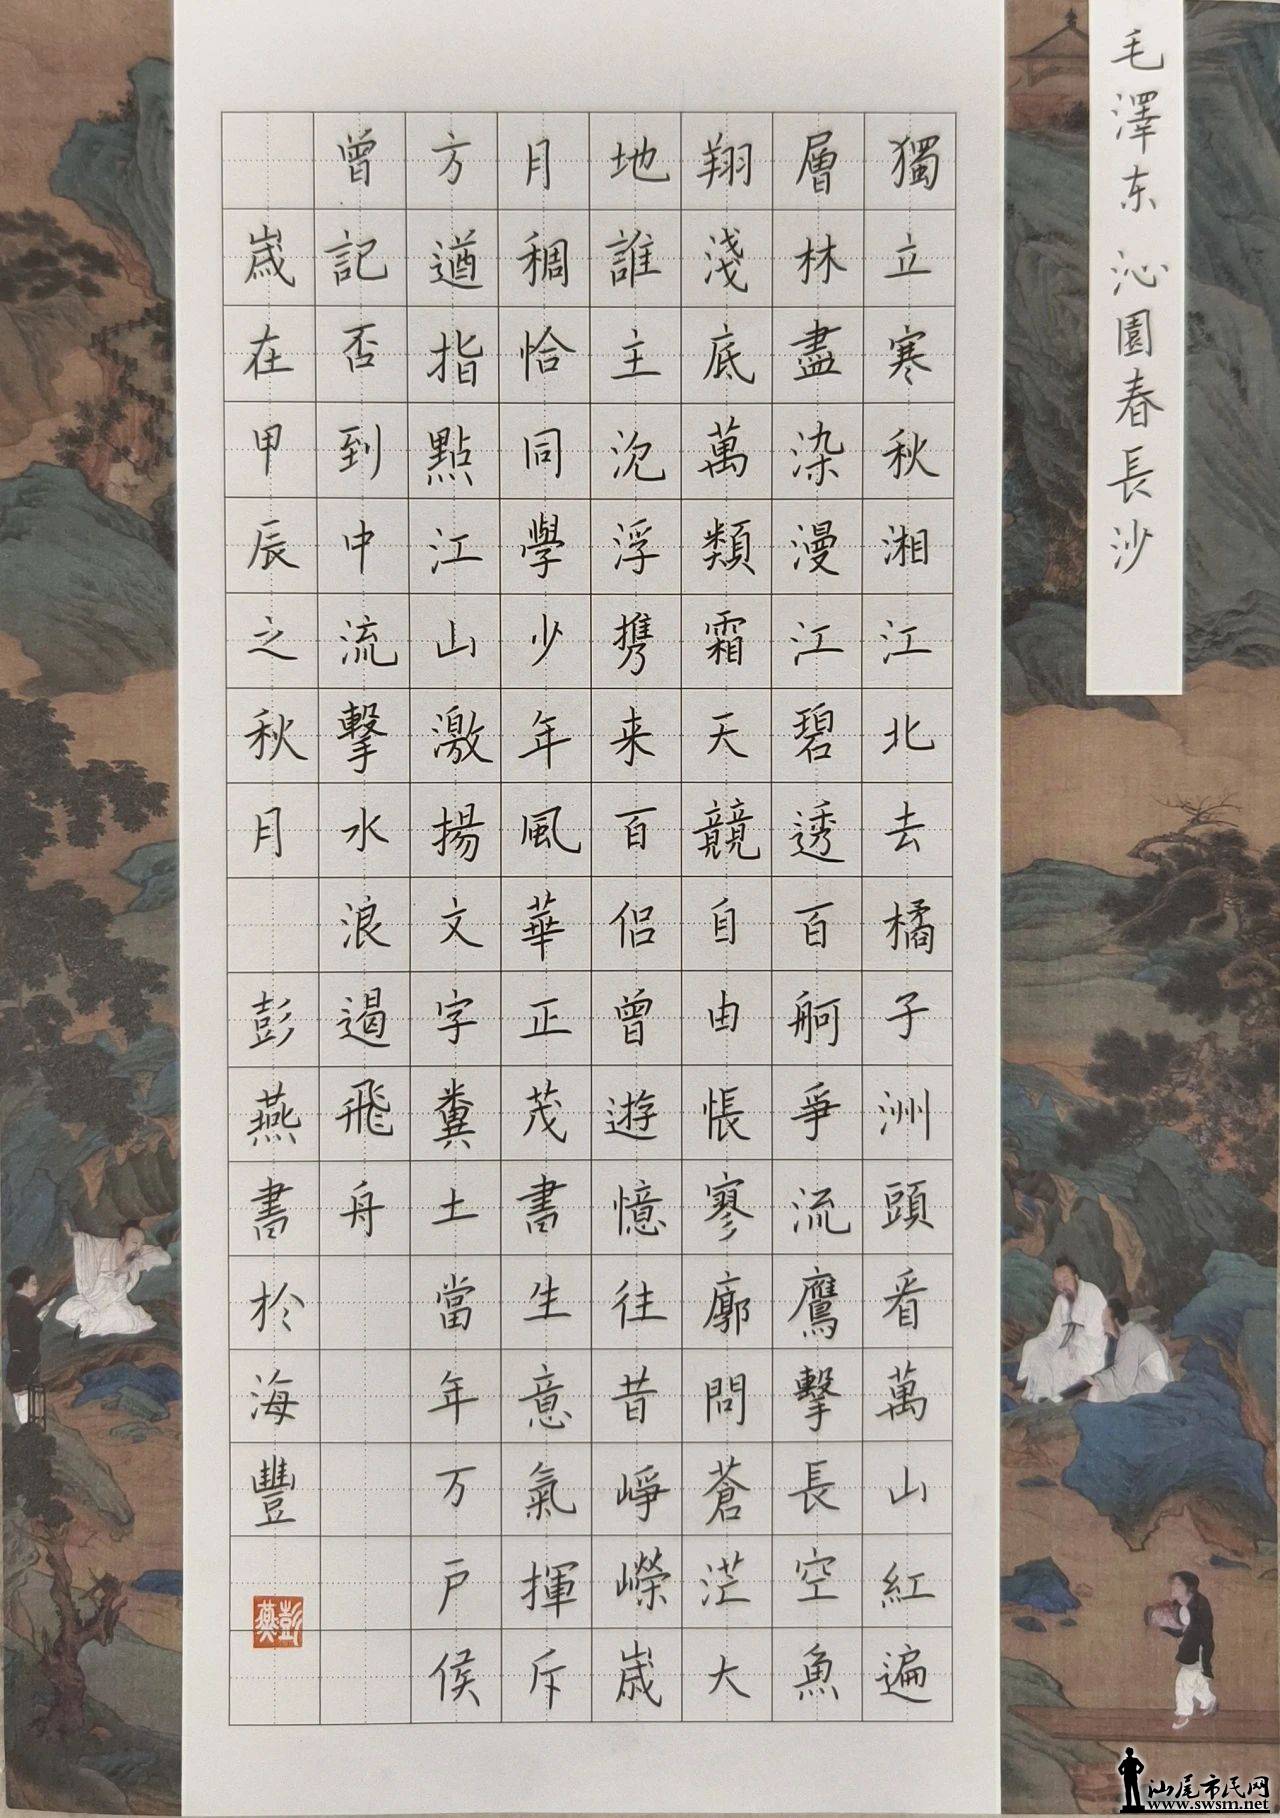 毛澤东 沁園春長沙
獨立寒秋湘江北去橘子洲頭看萬山紅遍
層林盡染漫江碧透百舸爭流鷹擊長空魚
翔淺底萬類霜天競自由悵寥廓問蒼茫大
地誰主沉浮携来百侣曾遊憶往昔崢嶸歲
月稠恰同學少年風華正茂書生意氣揮斥
方遒指點江山激揚文字糞土當年万户侯
曾記否到中流擊水浪遏飛舟
歲在甲辰之秋月 彭燕書於海豐
彭燕
汕尾市民网
www.swsm.net